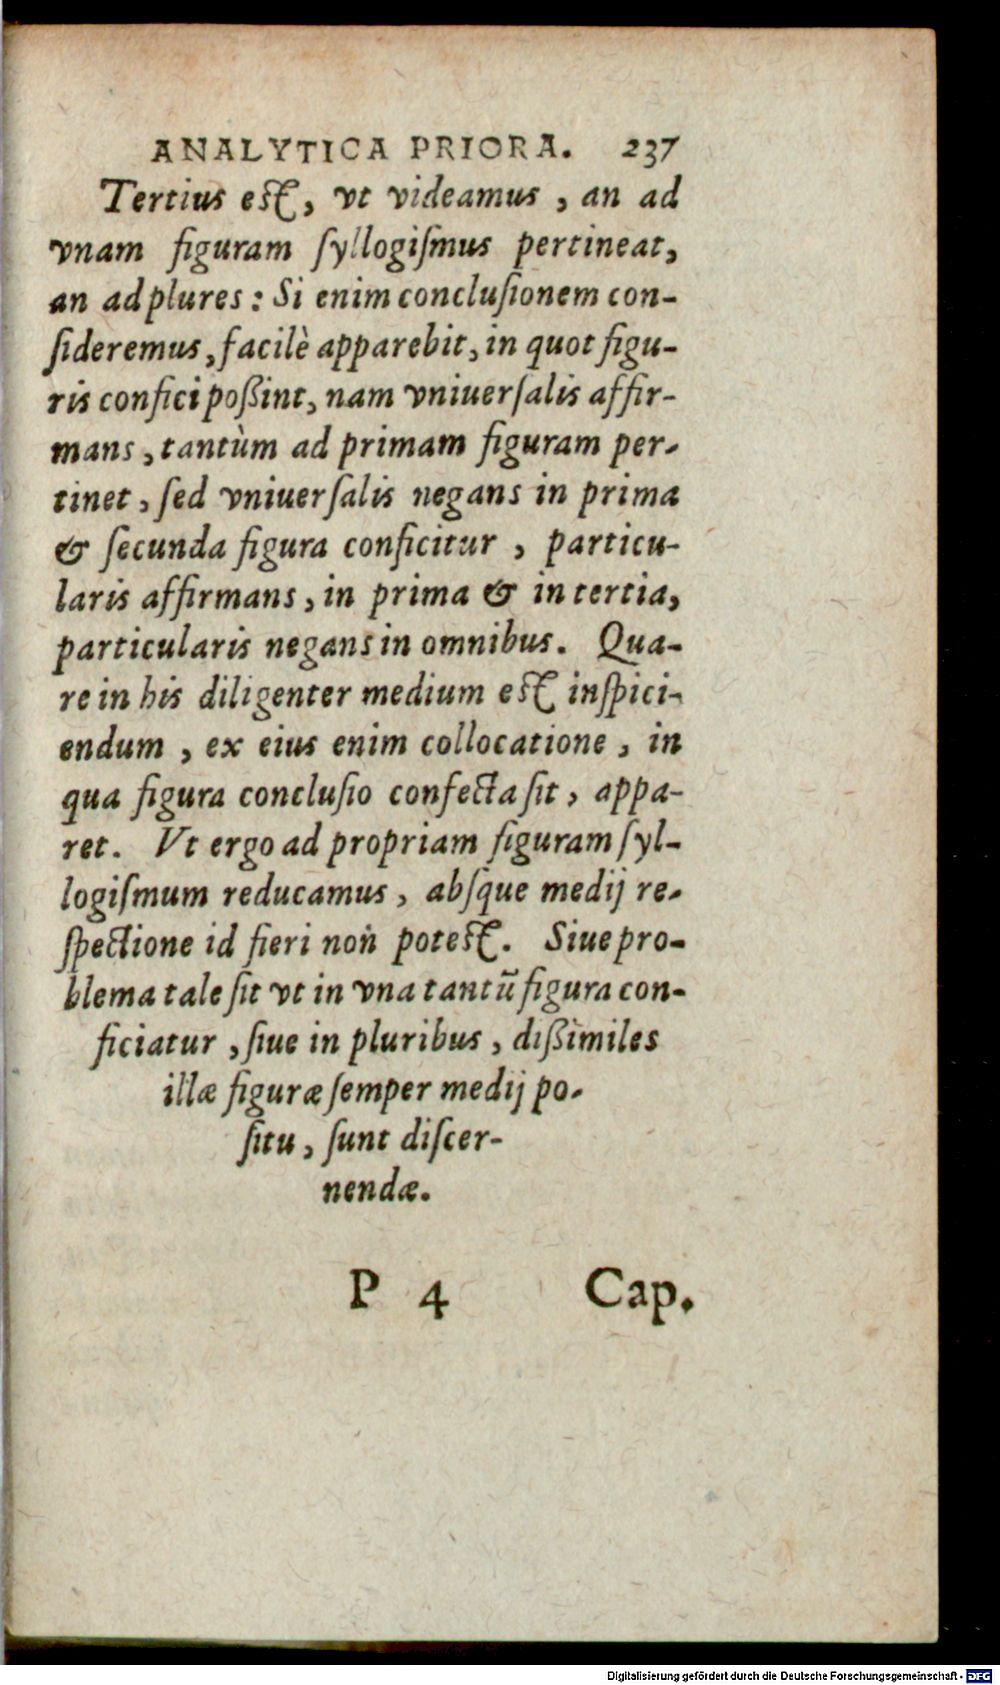 ANALYTICA PRIORA. 237
Tertius est, vt videamus, an ad
vnam figuram ſyllogiſmus pertineat,
an ad plures: Si enim concluſionem con-
ſideremus, facilè apparebit, in quot figu-
ris confici poßint, nam vniuerſalis affir-
mans, tantùm ad primam figuram per-
tinet, ſed vniuerſalis negans in prima
& ſecunda figura conficitur, particu-
laris affirmans, in prima & in tertia,
particularis negans in omnibus. Qua-
re in his diligenter medium est inſpici-
endum, ex eius enim collocatione, in
qua figura concluſio confecta ſit, appa-
ret. Vt ergo ad propriam figuram ſyl-
logiſmum reducamus, abſque medij re-
ſpectione id fieri non potest. Siue pro-
blema tale ſit vt in vna tantū figura con-
ficiatur, ſiue in pluribus, dißimiles
illæ figuræ ſemper medij po-
ſitu, ſunt diſcer-
nendæ.
P 4 Cap.
Digitalisierung gefördert durch die Deutsche Forschungsgemeinschaft - DFG